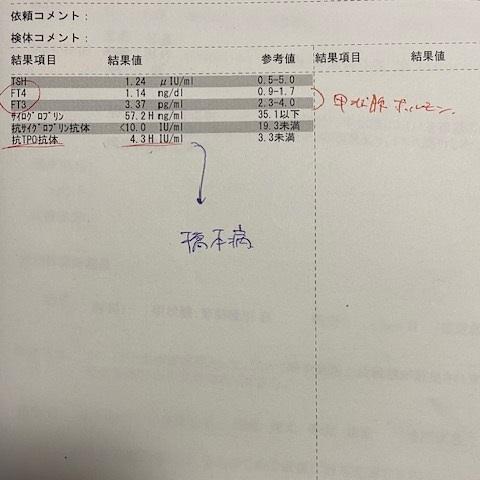 依頼コメント：
検体コメント：
結果項目 結果値 参考値 結果項目 結果値
TSH 1.24 μIU/ml 0.5-5.0
FT4 1.14 ng/dl 0.9-1.7
FT3 3.37 pg/ml 2.3-4.0
甲状腺ホルモン
ｻｲﾛｸﾞﾛﾌﾞﾘﾝ 57.2 H ng/ml 35.1以下
抗ｻｲｸﾞﾛﾌﾞﾘﾝ抗体 <10.0 IU/ml 19.3未満
抗TPO抗体 4.3 H IU/ml 3.3未満
橋本病